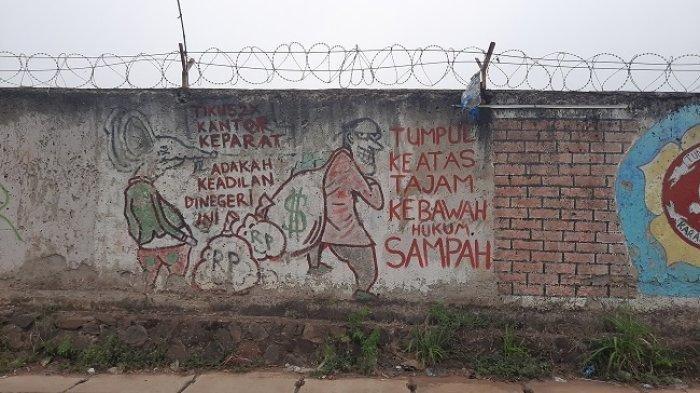 TIKUS2X
KANTOR
KEPARAT
ADAKAH
KEADILAN
DINEGERI
INI
$
RP
RP
TUMPUL
KEATAS
TAJAM
KEBAWAH
HUKUM
SAMPAH